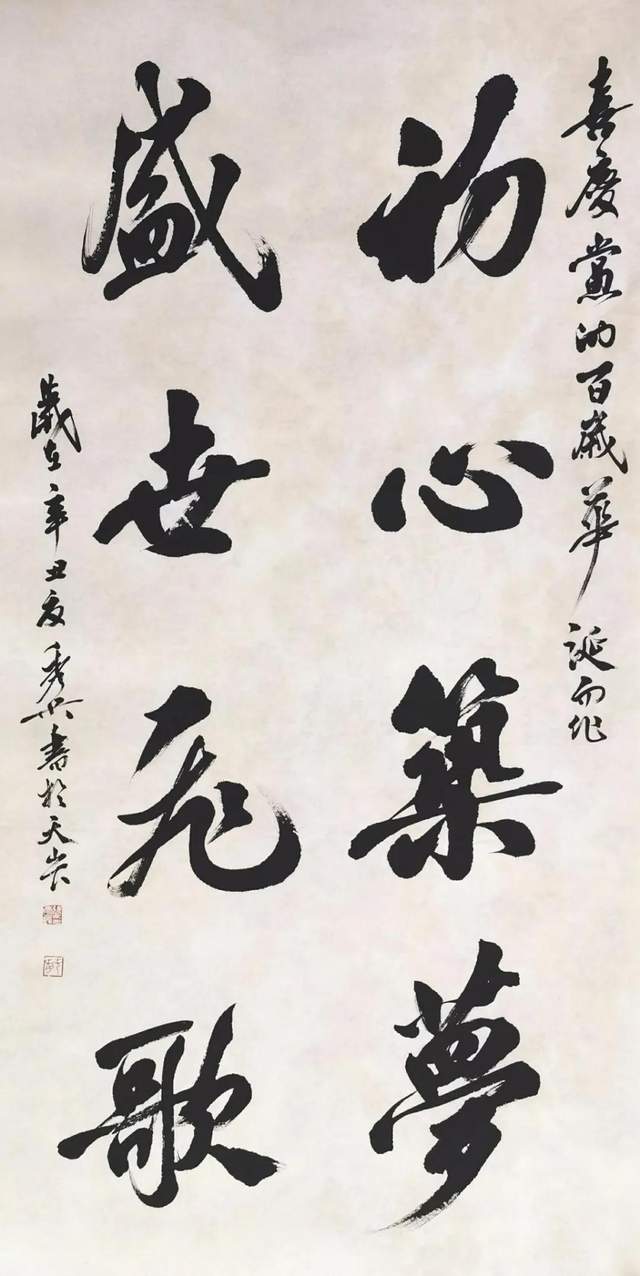 喜慶黨的百歲華誕而作
初心築夢
盛世飛歌
歲在辛丑夏秀兴書於天岸